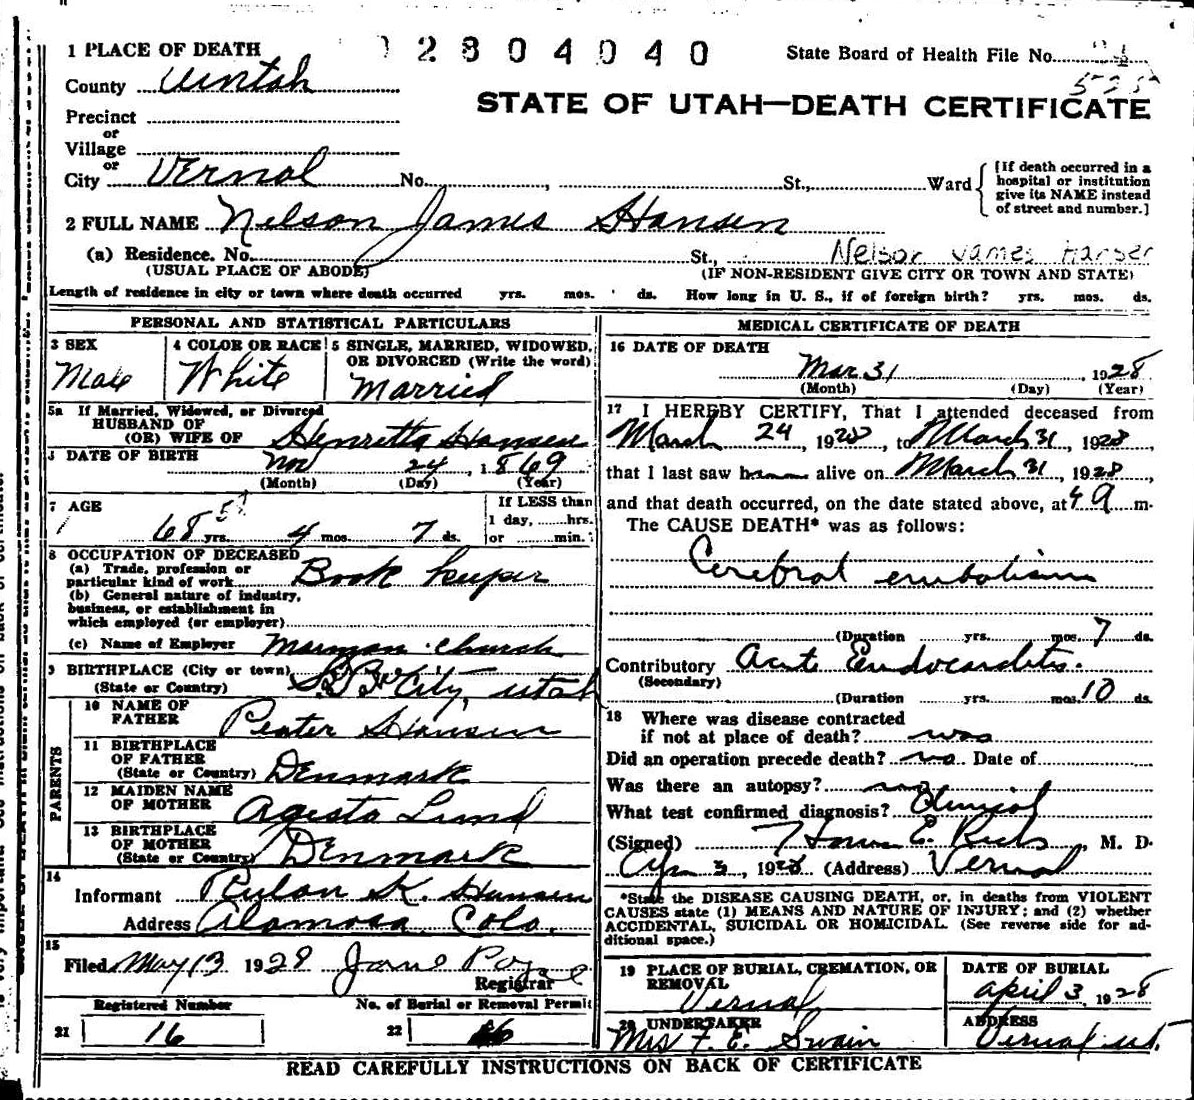 1 PLACE OF DEATH
2804040
State Board of Health File No.
County Uintah
525
STATE OF UTAH—DEATH CERTIFICATE
Precinct
or
Village
or
City Vernal No. , St., Ward
[If death occurred in a hospital or institution give its NAME instead of street and number.]
2 FULL NAME Nelson James Hansen
(a) Residence. No. St., Nelson James Hansen
(USUAL PLACE OF ABODE) (IF NON-RESIDENT GIVE CITY OR TOWN AND STATE)
Length of residence in city or town where death occurred yrs. mos. ds. How long in U. S., if of foreign birth? yrs. mos. ds.
PERSONAL AND STATISTICAL PARTICULARS
3 SEX
Male
4 COLOR OR RACE
White
5 SINGLE, MARRIED, WIDOWED, OR DIVORCED (Write the word)
Married
5a If Married, Widowed, or Divorced
HUSBAND OF
(OR) WIFE OF Henretta Hansen
DATE OF BIRTH
Nov 24, 1869
(Month) (Day) (Year)
7 AGE
68 58 yrs. 4 mos. 7 ds.
If LESS than
1 day, hrs.
or min.
8 OCCUPATION OF DECEASED
(a) Trade, profession or
particular kind of work Book keeper
(b) General nature of industry,
business, or establishment in
which employed (or employer)
(c) Name of Employer Morman church
9 BIRTHPLACE (City or town)
(State or Country) City, utah
PARENTS
10 NAME OF
FATHER Peater Hansen
11 BIRTHPLACE
OF FATHER
(State or Country) Denmark
12 MAIDEN NAME
OF MOTHER Agesta Lund
13 BIRTHPLACE
OF MOTHER
(State or Country) Denmark
14
Informant Rulon K. Hansen
Address Alamosa Colo.
15
Filed May 13 1928 Jane Pope
Registrar
Registered Number
21 16
No. of Burial or Removal Permit
22 16
MEDICAL CERTIFICATE OF DEATH
16 DATE OF DEATH
Mar 31, 1928
(Month) (Day) (Year)
17 I HEREBY CERTIFY, That I attended deceased from
March 24 1928, to March 31, 1928
that I last saw h alive on March 31, 1928,
and that death occurred, on the date stated above, at 4 a m.
The CAUSE DEATH* was as follows:
Cerebral embolism
(Duration yrs. mos. 7 ds.
Contributory Acute Endocarditis.
(Secondary)
(Duration yrs. mos. 10 ds.
18 Where was disease contracted
if not at place of death? was
Did an operation precede death? no Date of
Was there an autopsy? no
What test confirmed diagnosis? Clinical
(Signed) E. Rich, M. D.
Apr 3, 1928 (Address) Vernal
*State the DISEASE CAUSING DEATH, or, in deaths from VIOLENT
CAUSES state (1) MEANS AND NATURE OF INJURY; and (2) whether
ACCIDENTAL, SUICIDAL OR HOMICIDAL. (See reverse side for ad-
ditional space.)
19 PLACE OF BURIAL, CREMATION, OR
REMOVAL
Vernal
DATE OF BURIAL
April 3, 1928
20 UNDERTAKER
Mrs F. E. Swain
ADDRESS
Vernal ut.
READ CAREFULLY INSTRUCTIONS ON BACK OF CERTIFICATE